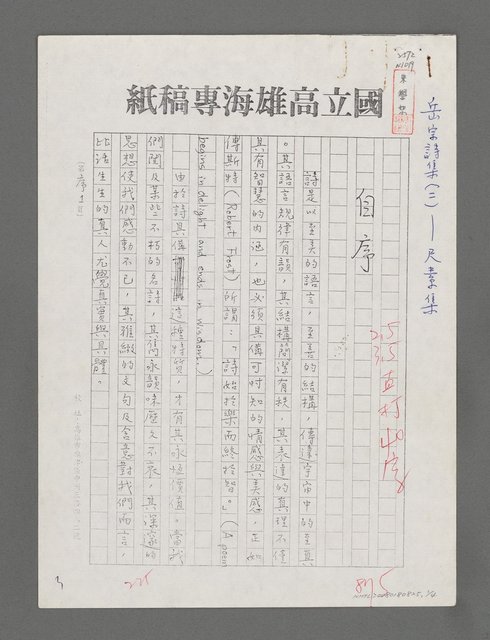 國立高雄海專稿紙
岳宗詩集(三)—尺素集
自序
詩是以至美的語言，至善的結構，傳達宇宙中的至真
。其語言規律有韻，其結構簡潔有秩，其表達的真理不僅
具有智慧的內涵，也必須具備可感知的情感與美感，正如
傅斯特(Robert Frost)所謂：「詩始於樂而終於智。」(A poem
begins in delight and ends in wisdom.)
由於詩具備這種特質，才有其永恒價值。當我
們閱及某些不朽的名詩，其雋永韻味歷久不衰，其深邃的
思想使我們感動不已，其雅緻的文句及含意對我們而言，
比活生生的真人尤覺真實與具體。
2.5
3.5
直打40字
225
3
875